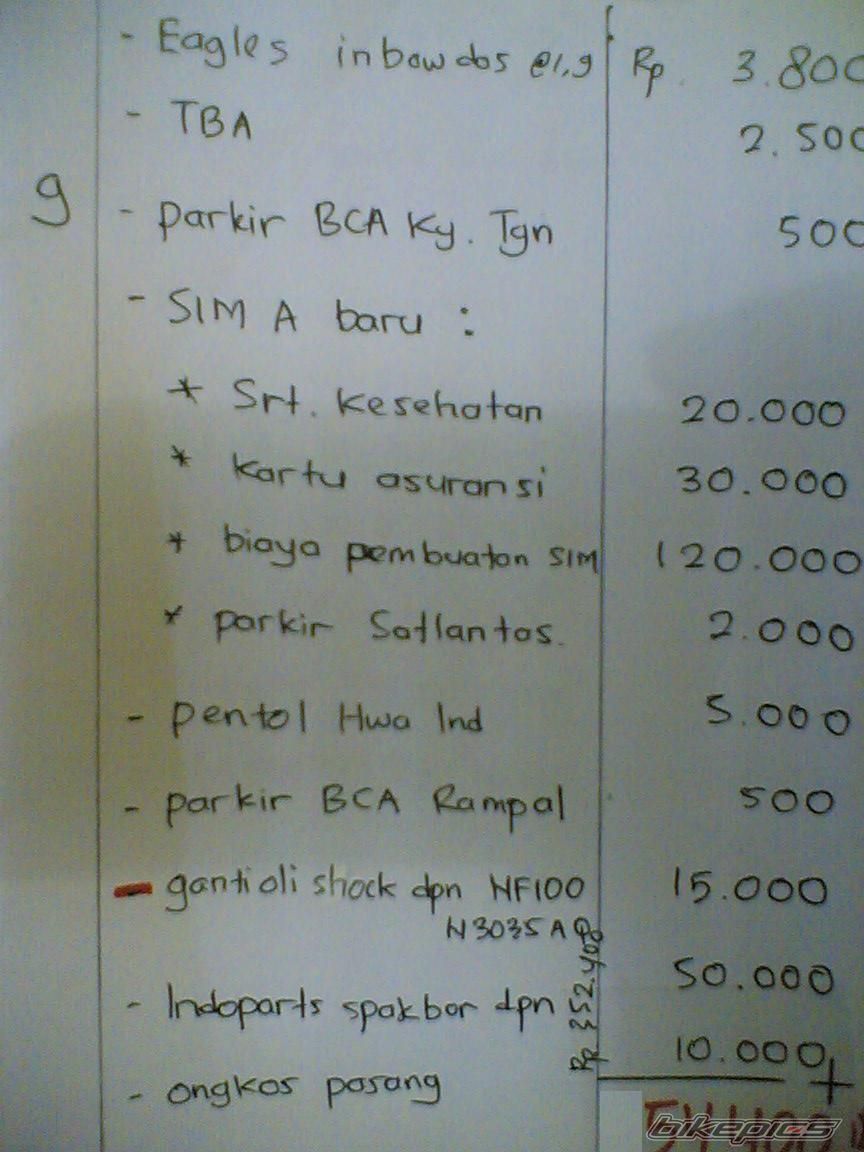 - Eagles inbow dos @1,9 Rp. 3.800
- TBA 2.500
9 - parkir BCA Ky. Tgn 500
- SIM A baru :
* Srt. kesehatan 20.000
* kartu asuransi 30.000
* biaya pembuatan SIM 120.000
* parkir Satlantas. 2.000
- pentol Hwa Ind 5.000
- parkir BCA Rampal 500
- ganti oli shock dpn NF100 15.000
N3035AQ
- Indoparts spakbor dpn 50.000
- ongkos pasang 10.000 +
bikepics